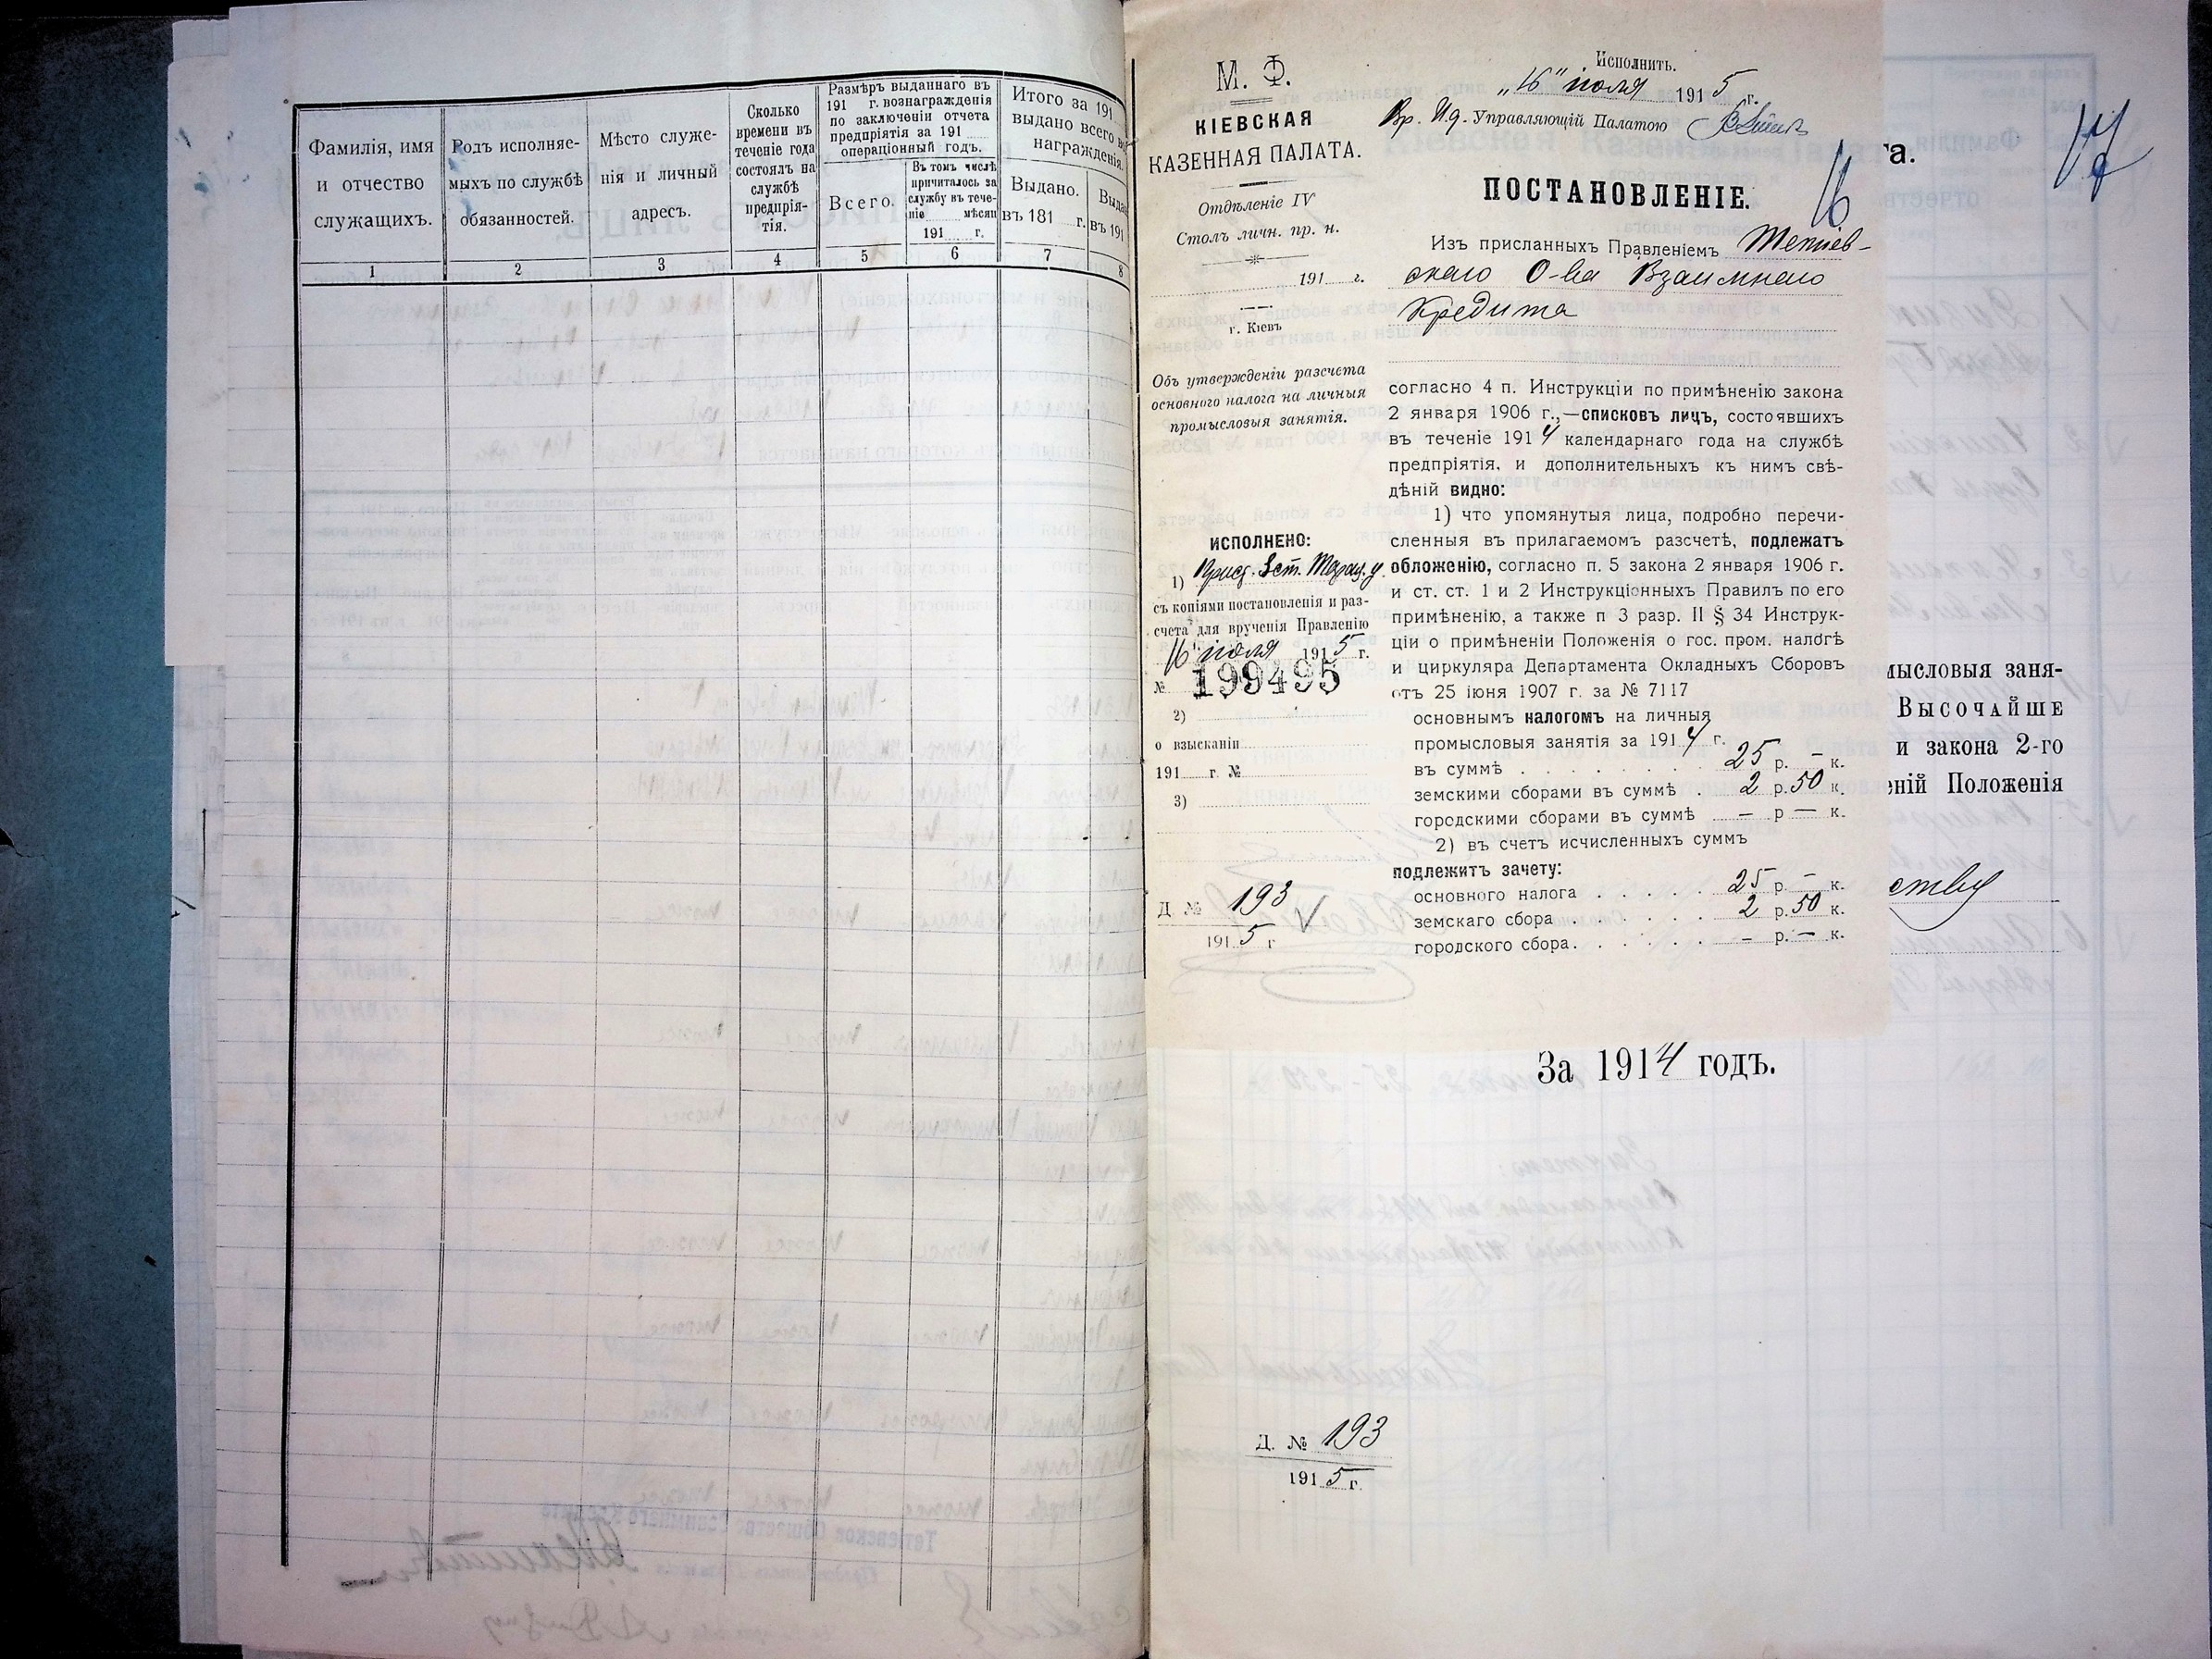 Фамилія, имя
и отчество
служащихъ.
Родъ исполняе-
мыхъ по службѣ
обязанностей.
Мѣсто служе-
нія и личный
адресъ.
Сколько
времени въ
теченіе года
состоялъ на
службѣ
предпрія-
тія.
Размѣръ выданнаго въ
191 г. вознагражденія
по заключеніи отчета
предпріятія за 191
операціонный годъ.
Всего.
Въ томъ числѣ
причиталось за
службу въ тече-
ніе мѣсяц
191 г.
Итого за 191
выдано всего в
награжденія.
Выдано.
въ 181 г.
Выда
въ 191
1 2 3 4 5 6 7 8
М. Ф.
КІЕВСКАЯ
КАЗЕННАЯ ПАЛАТА.
Отдѣленіе IV
Столъ личн. пр. н.
191 г.
г. Кіевъ
Объ утвержденіи разсчета
основного налога на личныя
промысловыя занятія.
ИСПОЛНЕНО:
1) Прист. 3 ст. Таращ. у.
съ копіями постановленія и раз-
счета для врученія Правленію
16 іюля 1915 г.
№ 199495
2)
о взысканіи
191 г. №
3)
Д. № 193
1915 г
Исполнить.
„16" іюля 1915 г.
Вр. И.д. Управляющій Палатою
16
ПОСТАНОВЛЕНІЕ.
Изъ присланныхъ Правленіемъ Тетіев-
скаго О-ва Взаимнаго
Кредита
согласно 4 п. Инструкціи по примѣненію закона
2 января 1906 г.,—списковъ лицъ, состоявшихъ
въ теченіе 1914 календарнаго года на службѣ
предпріятія, и дополнительныхъ къ нимъ свѣ-
дѣній видно:
1) что упомянутыя лица, подробно перечи-
сленныя въ прилагаемомъ разсчетѣ, подлежатъ
обложенію, согласно п. 5 закона 2 января 1906 г.
и ст. ст. 1 и 2 Инструкціонныхъ Правилъ по его
примѣненію, а также п 3 разр. II § 34 Инструк-
ціи о примѣненіи Положенія о гос. пром. налогѣ
и циркуляра Департамента Окладныхъ Сборовъ
отъ 25 іюня 1907 г. за № 7117
основнымъ налогомъ на личныя
промысловыя занятія за 1914 г.
въ суммѣ . . . . . . . . 25 р. – к.
земскими сборами въ суммѣ . 2 р. 50 к.
городскими сборами въ суммѣ — р — к.
2) въ счетъ исчисленныхъ суммъ
подлежитъ зачету:
основного налога . . . . . 25 р – к.
земскаго сбора . . . . . . 2 р. 50 к.
городского сбора. . . . . . – р. – к.
17
га.
мысловыя заня-
Высочайше
и закона 2-го
еній Положенія
ства
За 1914 годъ.
Д. № 193
1915 г.